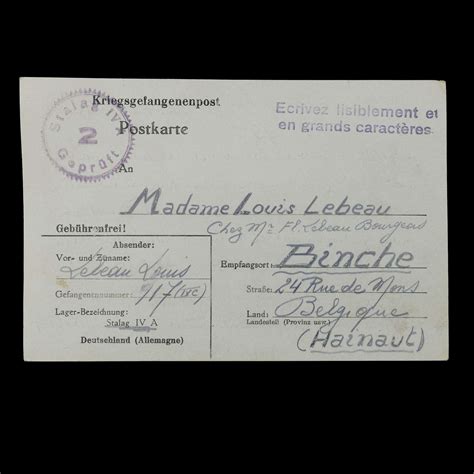 Stalag IV A
2
Geprüft
Kriegsgefangenenpost
Postkarte
Ecrivez lisiblement et
en grands caractères
An
Madame Louis Lebeau
Chez Mr Fl. Lebeau Bourgeois
Gebührenfrei!
Absender:
Vor- und Zuname:
Lebeau Louis
Gefangenennummer: 917 (IVC)
Lager-Bezeichnung:
Stalag IV A
Deutschland (Allemagne)
Empfangsort: Binche
Straße: 24 Rue de Mons
Land: Belgique
Landesteil (Provinz usw.)
(Hainaut)